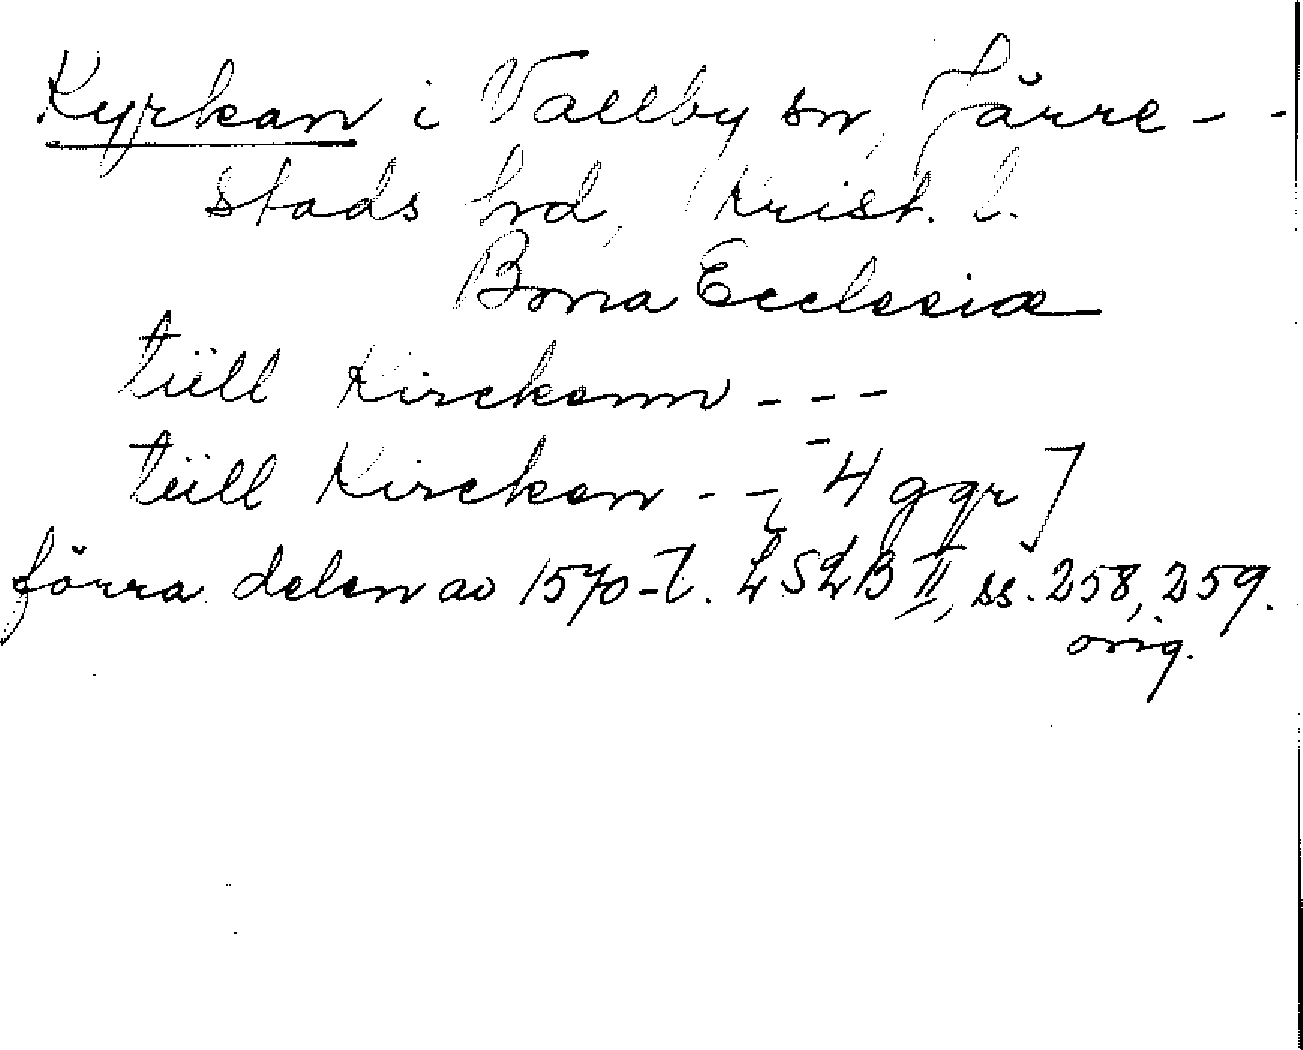 Kyrkan i Vallby sn, Järre- -
stads hrd, Krist. l.
Bona Ecclesiæ
tüll Kirckenn - - -
tüll Kircken - - [4 ggr]
förra delen av 1570-t. LSLB II, ss. 258, 259.
orig.